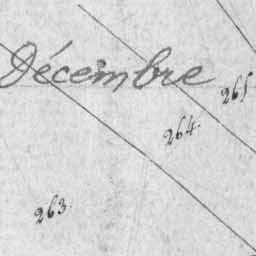 Décembre
265
264.
263.